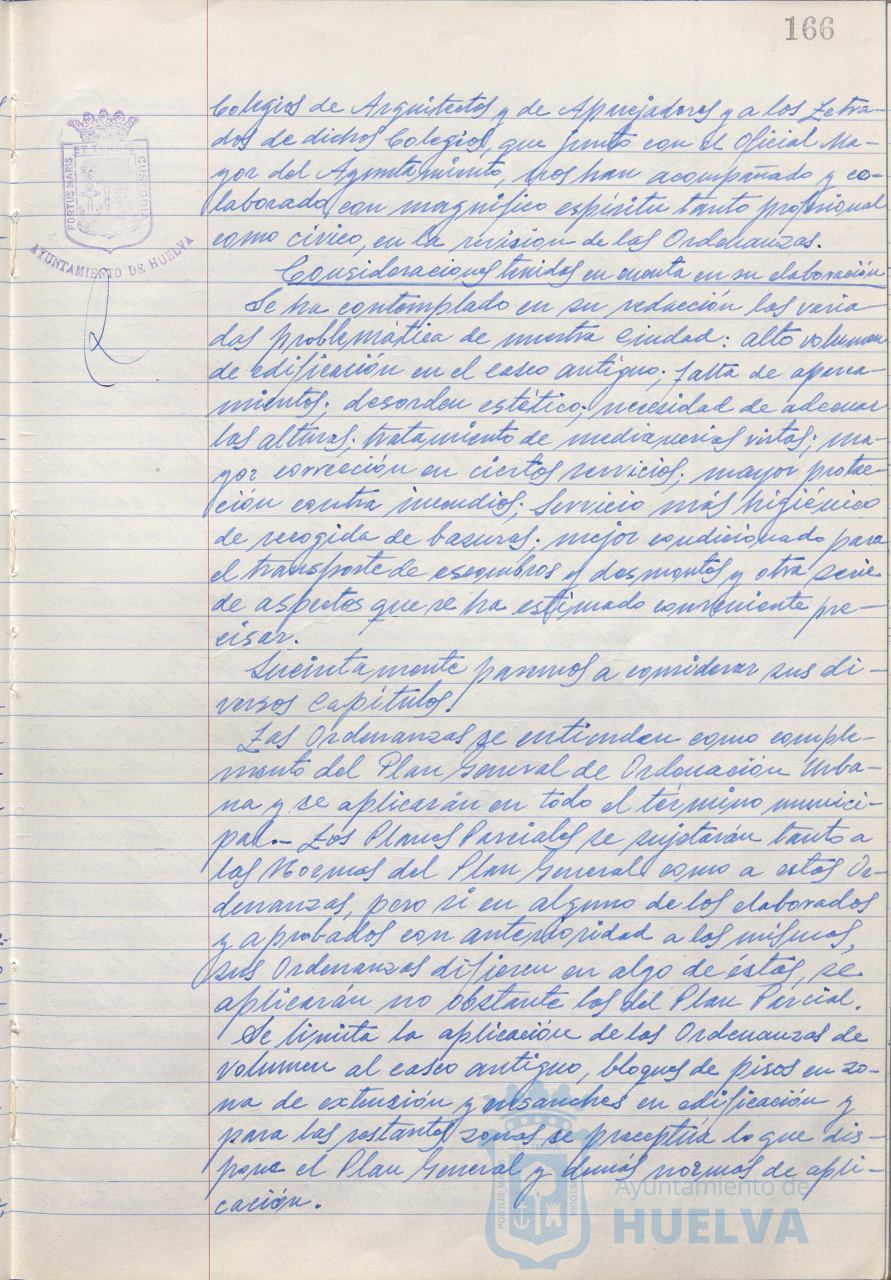 166
PORTUS MARIS
CUSTODIA
AYUNTAMIENTO DE HUELVA
Colegios de Arquitectos y de Aparejadores y a los Letra-
dos de dichos Colegios, que junto con el Oficial Ma-
yor del Ayuntamiento, nos han acompañado y co-
laborado con magnífico espíritu tanto profesional
como cívico, en la revisión de las Ordenanzas.
Consideraciones tenidas en cuenta en su elaboración
Se ha contemplado en su redacción las varia-
das problemática de nuestra Ciudad: alto volumen
de edificación en el casco antiguo; falta de aparca-
mientos; desorden estético; necesidad de adecuar
las alturas; tratamiento de medianerias vistas; ma-
yor corrección en ciertos servicios; mayor protec-
ción contra incendios; Servicio más higiénico
de recogida de basuras; mejor condicionado para
el transporte de escombros y desmontes y otra serie
de aspectos que se ha estimado conveniente pre-
cisar.
Sucintamente pasemos a considerar sus di-
versos Capítulos.
Las Ordenanzas se entienden como comple-
mento del Plan General de Ordenación Urba-
na y se aplicarán en todo el término munici-
pal.- Los Planes Parciales se sujetarán tanto a
las Normas del Plan General como a estas Or-
denanzas, pero si en alguno de los elaborados
y aprobados con anterioridad a las mismas,
sus Ordenanzas difieren en algo de éstas, se
aplicarán no obstante las del Plan Parcial.
Se limita la aplicación de las Ordenanzas de
volumen al casco antiguo, bloques de pisos en zo-
na de extensión y ensanches en edificación y
para las restantes zonas se preceptúa lo que dis-
pone el Plan General y demás normas de apli-
cación.
Ayuntamiento de
HUELVA